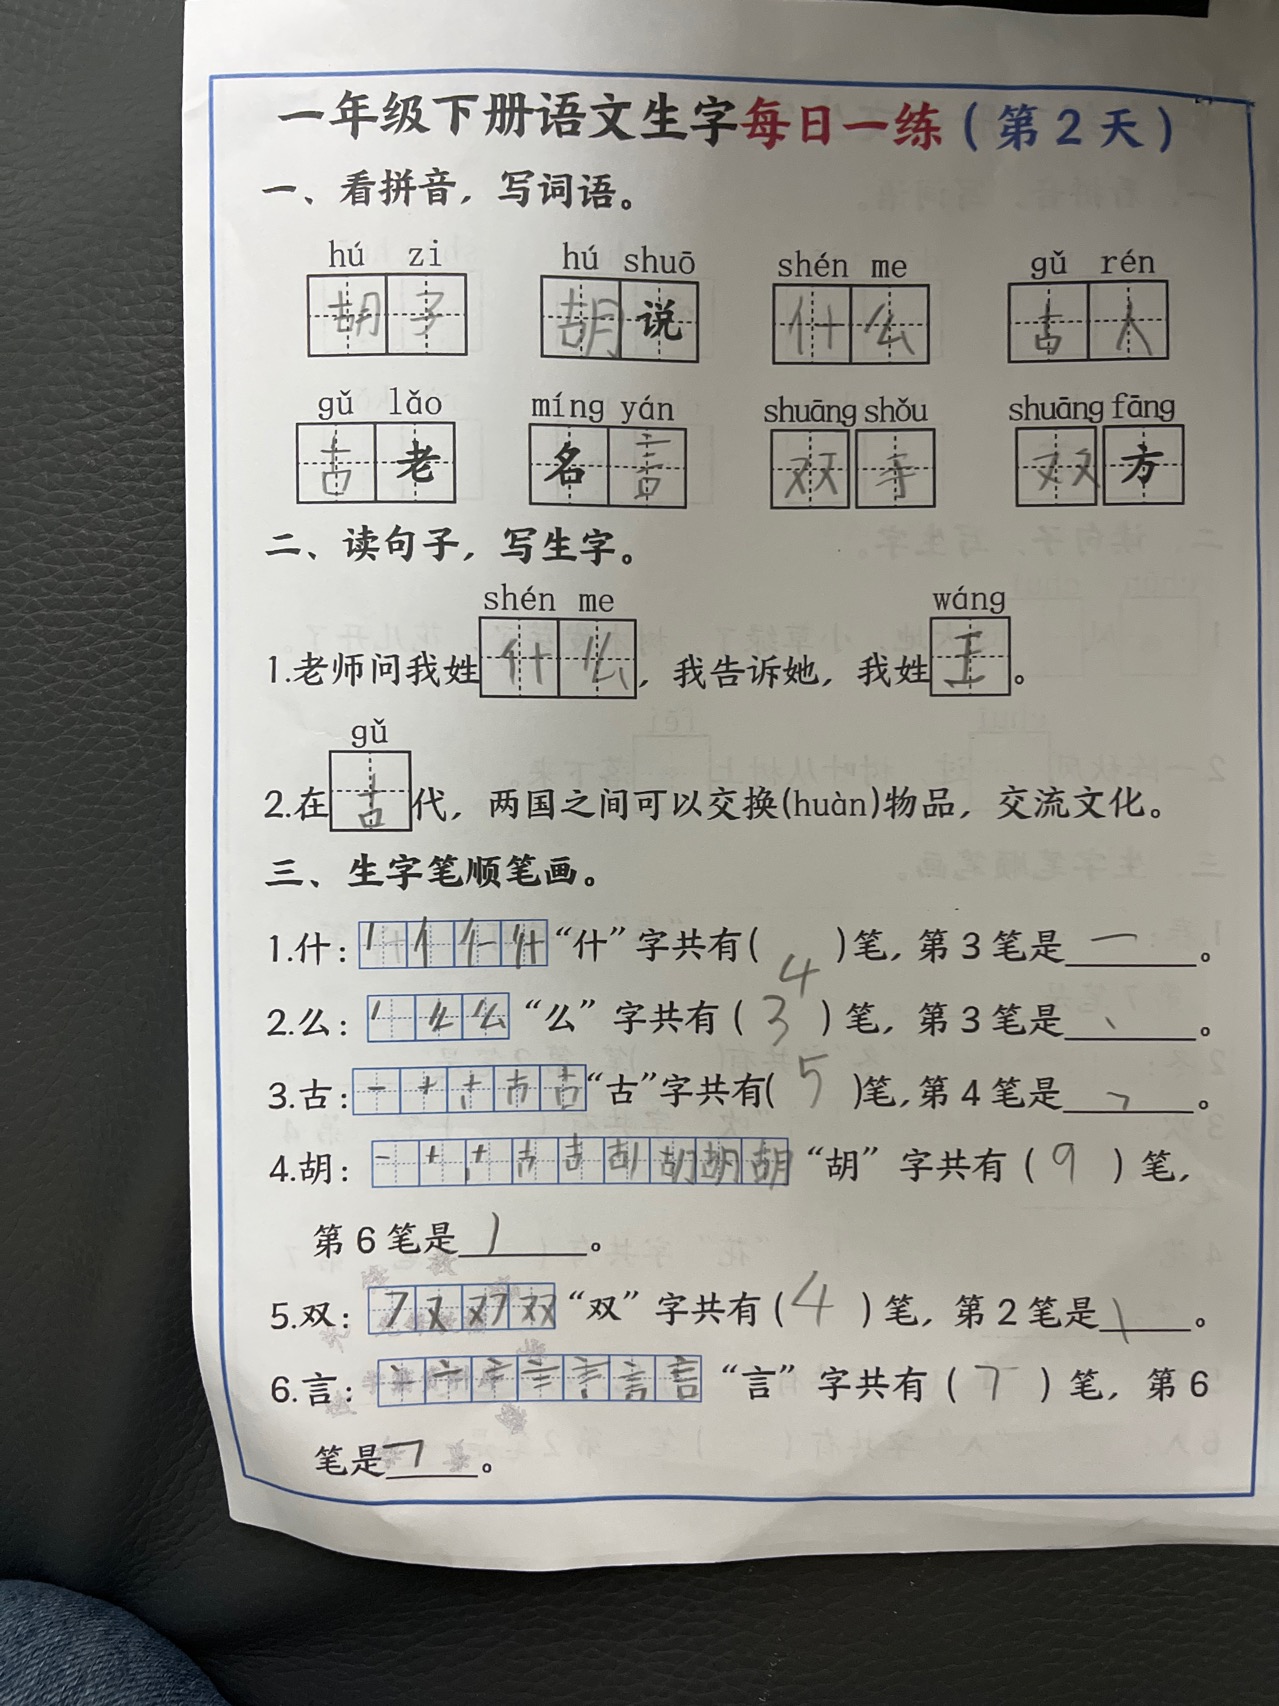 一年级下册语文生字每日一练（第2天）
一、看拼音，写词语。
hú zi hú shuō shén me gǔ rén
胡子 胡说 什么 古人
gǔ lǎo míng yán shuāng shǒu shuāng fāng
古老 名言 双手 双方
二、读句子，写生字。
shén me wáng
1.老师问我姓什么，我告诉她，我姓王。
gǔ
2.在古代，两国之间可以交换(huàn)物品，交流文化。
三、生字笔顺笔画。
1.什：丿亻仁什“什”字共有(4)笔，第3笔是一。
2.么：丿 么“么”字共有（3）笔，第3笔是丶。
3.古：一十古“古”字共有(5)笔，第4笔是㇕。
4.胡：一十古胡“胡”字共有（9）笔，
第6笔是丿。
5.双：㇇又双“双”字共有(4)笔，第2笔是㇏。
6.言：丶亠言“言”字共有（7）笔，第6
笔是㇕。